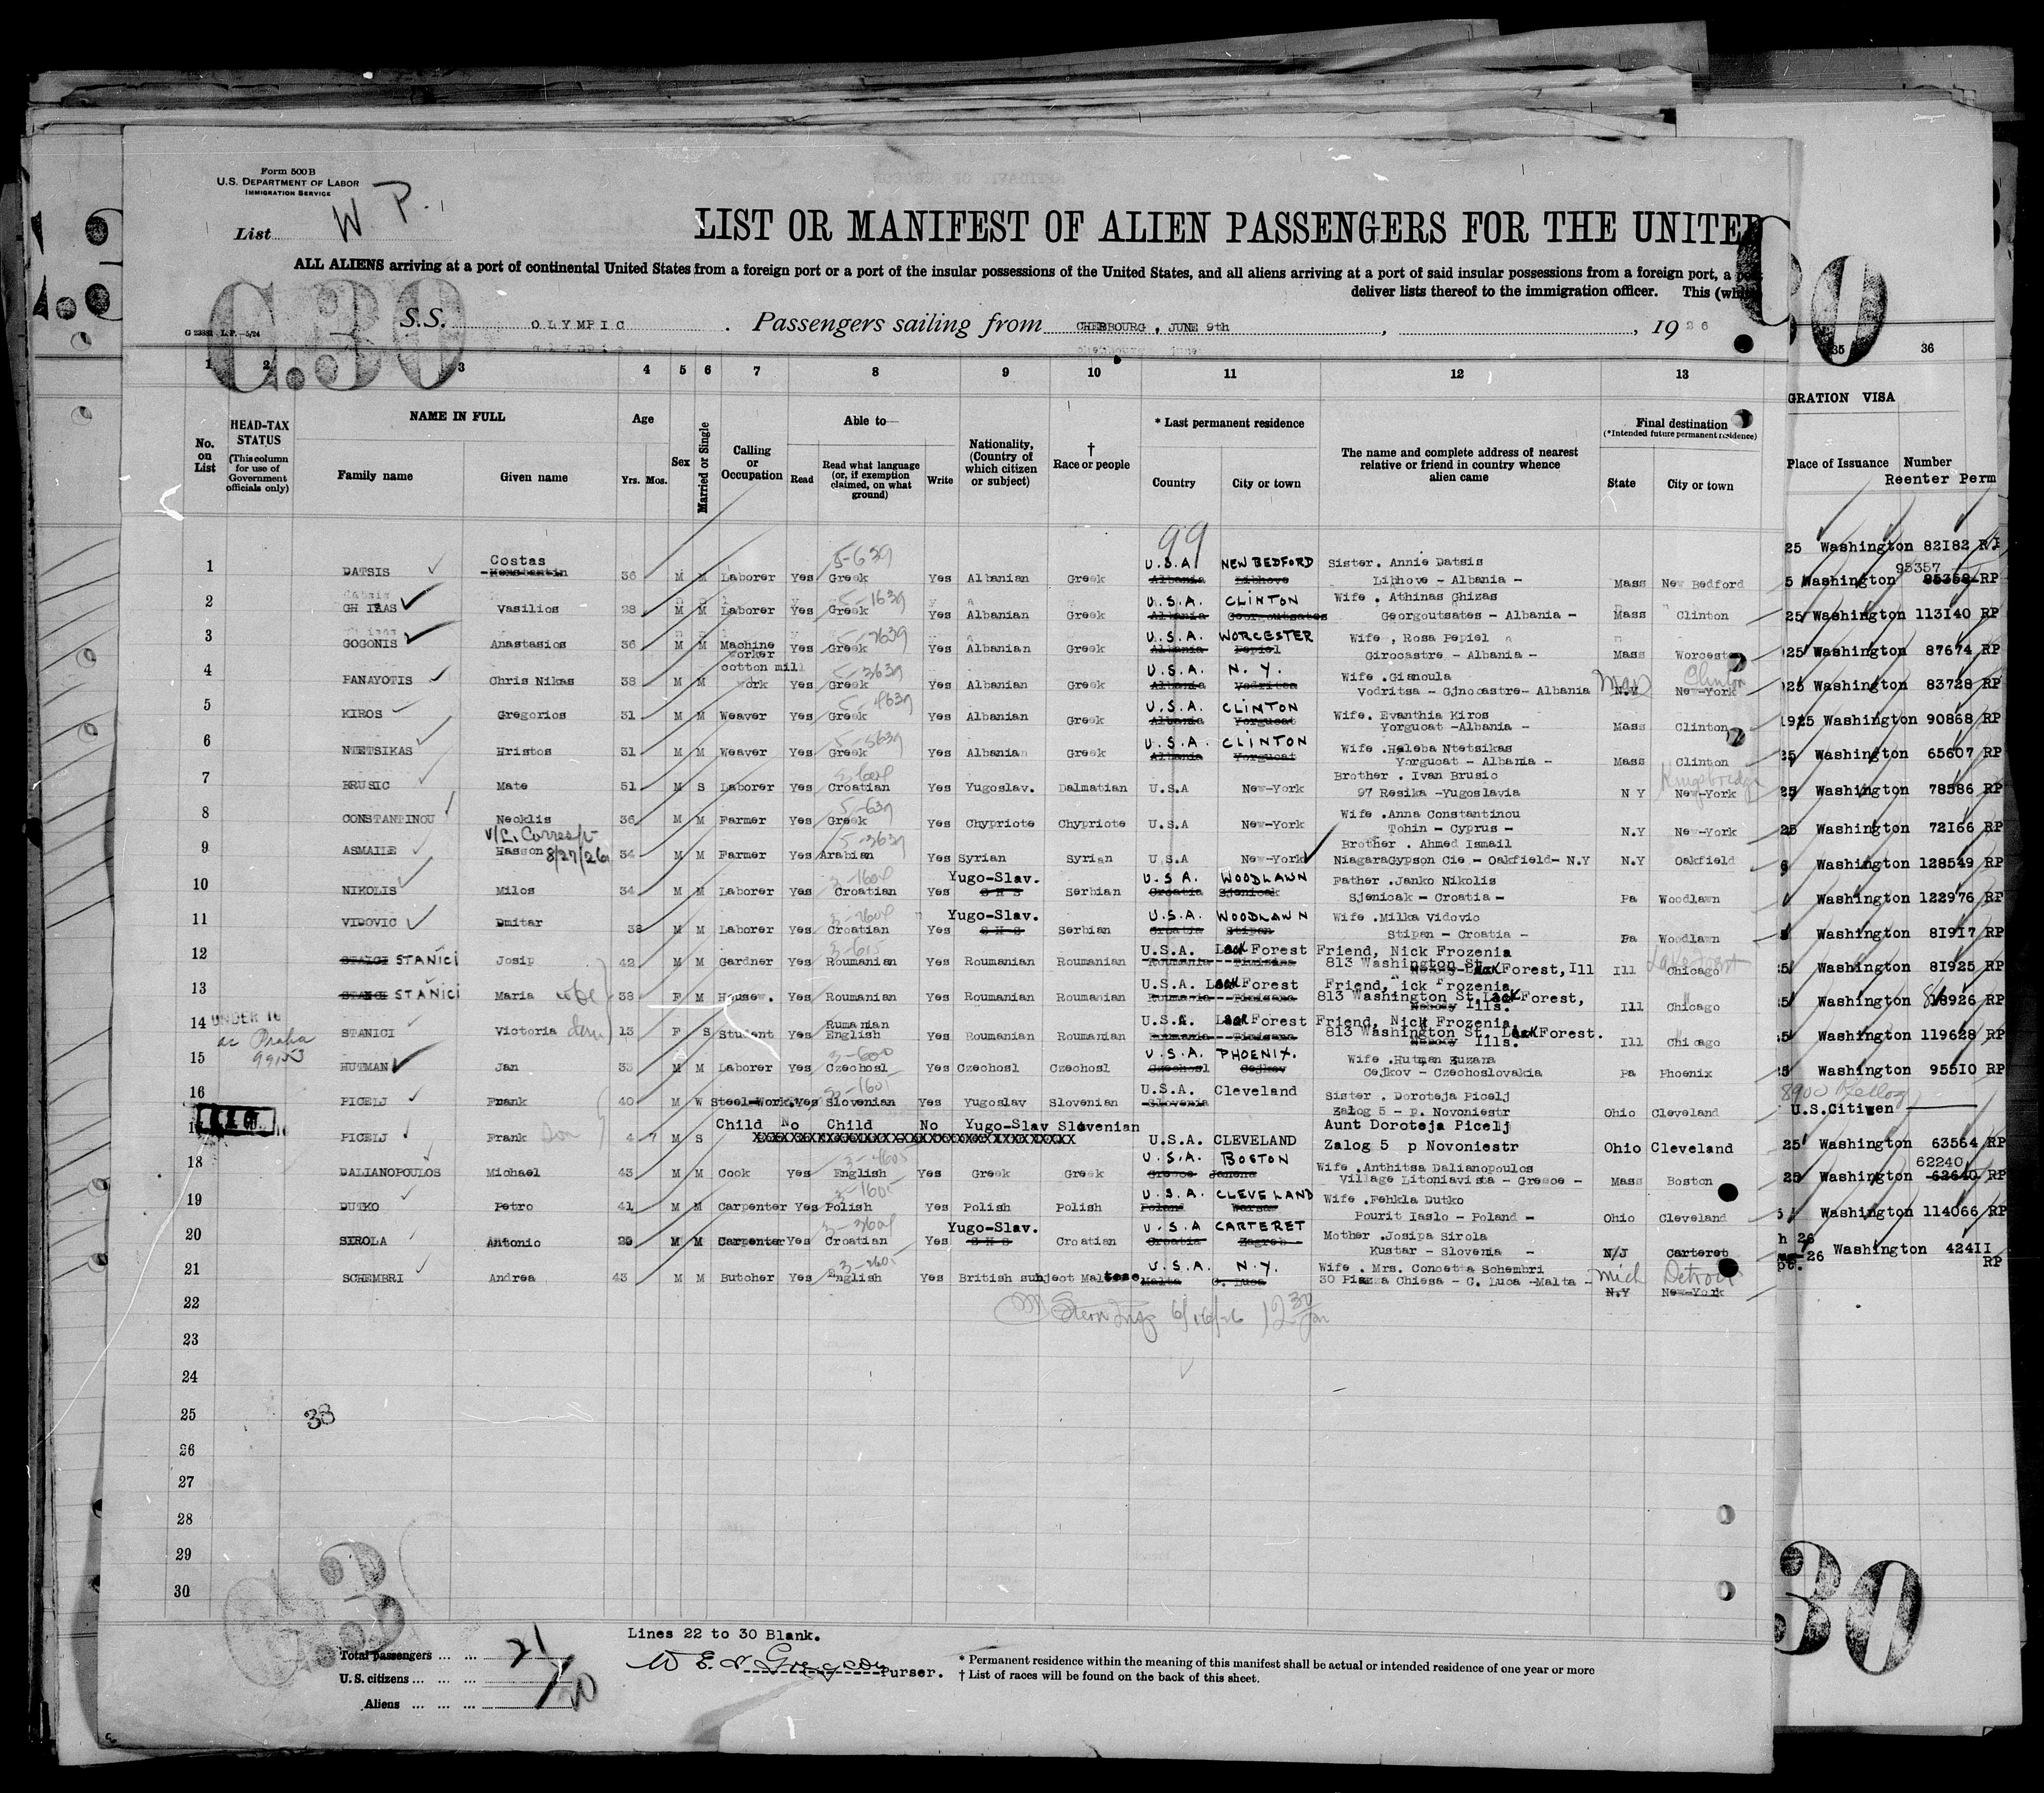 Form 500 B
U.S. DEPARTMENT OF LABOR
IMMIGRATION SERVICE
List W P.
LIST OR MANIFEST OF ALIEN PASSENGERS FOR THE UNITED
ALL ALIENS arriving at a port of continental United States from a foreign port or a port of the insular possessions of the United States, and all aliens arriving at a port of said insular possessions from a foreign port, a
deliver lists thereof to the immigration officer. This (wh
C.30
S.S. OLYMPIC . Passengers sailing from CHERBOURG, JUNE 9th , , 1926
1 2 3 4 5 6 7 8 9 10 11 12 13 35 36
No. on List
HEAD-TAX STATUS (This column for use of Government officials only)
NAME IN FULL
Family name Given name
Age Yrs. Mos.
Sex
Married or Single
Calling or Occupation
Able to—
Read Read what language (or, if exemption claimed, on what ground) Write
Nationality, (Country of which citizen or subject)
† Race or people
* Last permanent residence
Country City or town
The name and complete address of nearest relative or friend in country whence alien came
Final destination (*Intended future permanent residence)
State City or town
GRATION VISA
Place of Issuance Number
Reenter Perm
99
25 Washington 82182 R.P
1 DATSIS Costas Konstantin 36 M M Laborer Yes Greek 5-639 Yes Albanian Greek U.S.A. NEW BEDFORD Albania Libhove Sister. Annie Datsis Libhove - Albania - Mass New Bedford 5 Washington 95357 85358 RP
2 GHIZAS Vasilios 28 M M Laborer Yes Greek 5-1639 Yes Albanian Greek U.S.A. CLINTON Albania Georgoutsates Wife . Athinas Ghizas Georgoutsates - Albania - Mass Clinton 25 Washington 113140 RP
3 GOGONIS Anastasios 36 M M Machine worker Yes Greek 5-2639 Yes Albanian Greek U.S.A. WORCESTER Albania Pepiel Wife , Rosa Pepiel Girocastre - Albania - Mass Worcester 25 Washington 87674 RP
4 PANAYOTIS Chris Nikas 38 M M cotton mill work Yes Greek 5-3639 Yes Albanian Greek U.S.A. N.Y. Albania Vodritsa Wife .Gianoula Vodritsa - Gjnocastre- Albania Mass N.Y Clinton New-York 25 Washington 83728 RP
5 KIROS Gregorios 31 M M Weaver Yes Greek 5-4639 Yes Albanian Greek U.S.A. CLINTON Albania Yorgucat Wife. Evanthia Kiros Yorgucat -Albania - Mass Clinton 1925 Washington 90868 RP
6 NTETSIKAS Hristos 31 M M Weaver Yes Greek 5-5639 Yes Albanian Greek U.S.A. CLINTON Albania Yorgucat Wife .Heleba Ntetsikas Yorgucat - Albania - Mass Clinton 25 Washington 65607 RP
7 BRUSIC Mate 51 M S Laborer Yes Croatian Yes Yugoslav. Dalmatian U.S.A New-York Brother . Ivan Brusic 97 Resika -Yugoslavia N Y New-York 25 Washington 78586 RP
8 CONSTANTINOU Neoklis 36 M M Farmer Yes Greek 5-639 Yes Chypriote Chypriote U.S.A New-York Wife .Anna Constantinou Tohin - Cyprus - N.Y New-York 25 Washington 72166 RP
9 ASMAILE Hasson V/L. Corresp- 8/27/26 34 M M Farmer Yes Arabian 5-3639 Yes Syrian Syrian U.S.A New-York Brother . Ahmed Ismail NiagaraGypson Cie - Oakfield- N.Y N.Y Oakfield 6 Washington 128549 RP
10 NIKOLIS Milos 34 M M Laborer Yes Croatian Yes Yugo-Slav. S H S Serbian U.S.A. WOODLAWN Croatia Sjenicak Father .Janko Nikolis Sjenicak - Croatia - Pa Woodlawn Washington 122976 RP
11 VIDOVIC Dmitar 38 M M Laborer Yes Croatian Yes Yugo-Slav. S H S Serbian U.S.A. WOODLAWN Croatia Stipan Wife .Milka Vidovic Stipan - Croatia - Pa Woodlawn Washington 81917 RP
12 STANICI Josip 42 M M Gardner Yes Roumanian 3-615 Yes Roumanian Roumanian U.S.A. Lack Forest Roumania Timisana Friend, Nick Frozenia 813 Washington St. Lack Forest, Ill Ill Lake Forest Chicago 25 Washington 81925 RP
13 STANICI Maria wife 38 F M Housew. Yes Roumanian Yes Roumanian Roumanian U.S.A. Lack Forest Roumania Timisana Friend, ick Frozenia 813 Washington St. Lack Forest, Ills. Ill Chicago 25 Washington 18926 RP
14 UNDER 16 STANICI Victoria 13 F S Student Yes Rumanian English Yes Roumanian Roumanian U.S.A. Lack Forest Roumania Timisana Friend, Nick Frozenia, 813 Washington St. Lack Forest. Ills. Ill Chicago 25 Washington 119628 RP
15 HUTMAN Jan 33 M M Laborer Yes Czechosl 3-600 Yes Czechosl Czechosl U.S.A. PHOENIX. Czechosl Cejkov Wife .Hutman Zuzana Cejkov - Czechoslovakia Pa Phoenix 25 Washington 95510 RP
16 PICELJ Frank 40 M W Steel-Work. Yes Slovenian Yes Yugoslav Slovenian U.S.A. Cleveland Slovenia Sister . Doroteja Picelj Zalog 5 - p. Novoniestr Ohio Cleveland U.S.Citiwen
PICELJ Frank Son 4 7 M S Child No Child No Yugo-Slav Slovenian U.S.A. CLEVELAND Aunt Doroteja Picelj Zalog 5 p Novoniestr Ohio Cleveland 25 Washington 63564 RP
18 DALIANOPOULOS Michael 43 M M Cook Yes English Yes Greek Greek U.S.A. BOSTON Greece Janena Wife .Anthitsa Dalianopoulos Village Litoniavista - Greece - Mass Boston 25 Washington 62240 62640 RP
19 DUTKO Petro 41 M M Carpenter Yes Polish 3-1605 Yes Polish Polish U.S.A. CLEVELAND Poland Warsaw Wife .Fehkla Dutko Pourit Iaslo - Poland - Ohio Cleveland Washington 114066 RP
20 SIROLA Antonio 29 M M Carpenter Yes Croatian Yes Yugo-Slav. S H S Croatian U.S.A CARTERET Croatia Zagreb Mother .Josipa Sirola Kustar - Slovenia - N/J Carteret 26 Washington 42411 RP
21 SCHEMBRI Andrea 43 M M Butcher Yes English Yes British subject Maltese U.S.A. N.Y. Malta C. Luca Wife . Mrs. Concetta Schembri 30 Piazza Chiesa - C. Luca -Malta - Mich Detroit N.Y New-York
22 Stern 6/16/26 12 30
23
24
25
33
26
27
28
29
30
Lines 22 to 30 Blank.
Total passengers ... ... 21
U.S. citizens ... ... ... 1
Aliens ... ... ... 20
Purser.
* Permanent residence within the meaning of this manifest shall be actual or intended residence of one year or more
† List of races will be found on the back of this sheet.
30